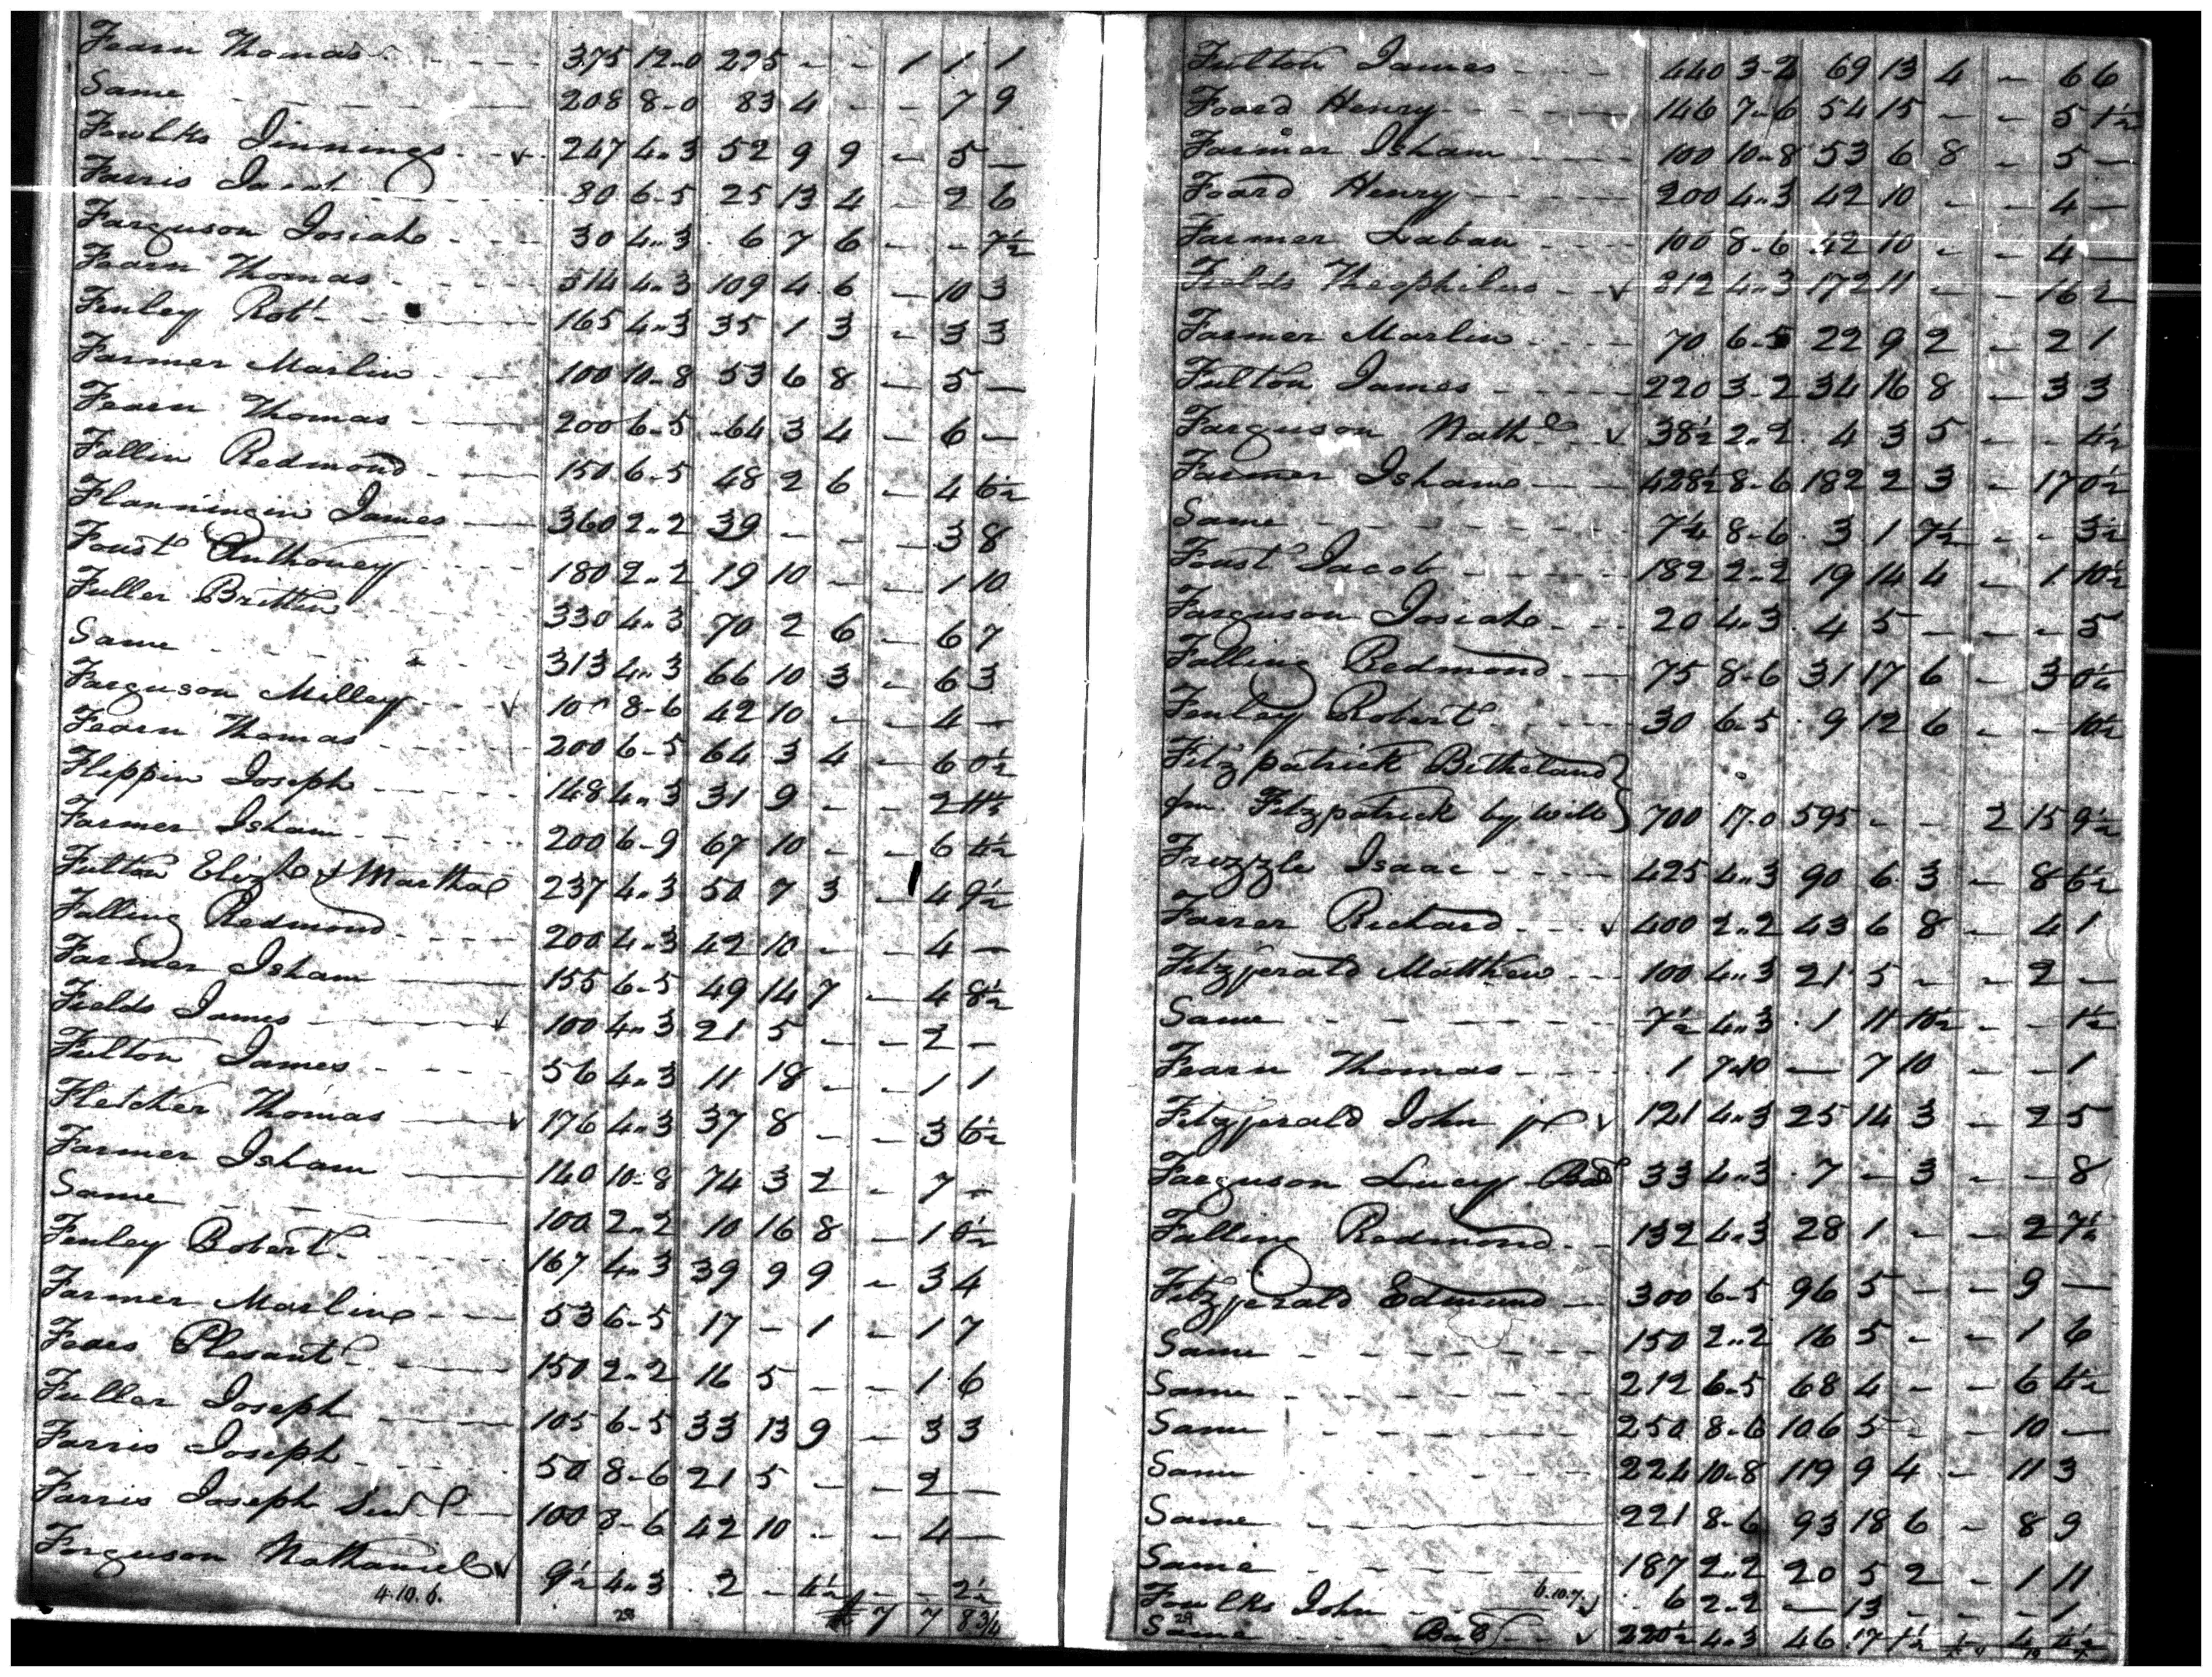 Fearn Thomas 375 12-0 225 - - 1 1 1
Same 208 8-0 83 4 - - 7 9
Fowlks Jinnings 247 4-3 52 9 9 - 5 -
Farris Jacob 80 6-5 25 13 4 - 2 6
Farguson Josiah 30 4-3 6 7 6 - - 7½
Fearn Thomas 514 4-3 109 4 6 - 10 3
Fenley Robt 165 4-3 35 1 3 - 3 3
Farmer Marlin 100 10-8 53 6 8 - 5 -
Fearn Thomas 200 6-5 64 3 4 - 6 -
Fallin Redmond 150 6-5 48 2 6 - 4 6½
Flanningin James 360 2-2 39 - - - 3 8
Foust Anthoney 180 2-2 19 10 - - 1 10
Fuller Brittin 330 4-3 70 2 6 - 6 7
Same 313 4-3 66 10 3 - 6 3
Farguson Milley 100 8-6 42 10 - - 4 -
Fearn Thomas 200 6-5 64 3 4 - 6 0½
Flippin Joseph 148 4-3 31 9 - - 2 11½
Farmer Isham 200 6-9 67 10 - - 6 4½
Fulton Elizh & Martha 237 4-3 50 7 3 - 4 9½
Falling Redmond 200 4-3 42 10 - - 4 -
Farmer Isham 155 6-5 49 14 7 - 4 8½
Fields James 100 4-3 21 5 - - 2 -
Fulton James 56 4-3 11 18 - - 1 1
Fletcher Thomas 176 4-3 37 8 - - 3 6½
Farmer Isham 140 10-8 74 3 2 - 7 -
Same 100 2-2 10 16 8 - 1 0½
Fenley Robert 167 4-3 39 9 9 - 3 4
Farmer Marlin 53 6-5 17 - 1 - 1 7
Fears Plesant 150 2-2 16 5 - - 1 6
Fuller Joseph 105 6-5 33 13 9 - 3 3
Farris Joseph 50 8-6 21 5 - - 2 -
Farris Joseph Senr 100 8-6 42 10 - - 4 -
Forguson Nathaniel 9½ 4-3 2 - 4½ - - 2½
4.10.6. 28 £ 7 7 8 3/4
Fulton James 440 3-2 69 13 4 - 6 6
Foard Henry 146 7-6 54 15 - - 5 1½
Farmer Isham 100 10-8 53 6 8 - 5 -
Foard Henry 200 4-3 42 10 - - 4 -
Farmer Laban 100 8-6 42 10 - - 4 -
Fields Theophilus 812 4-3 172 11 - - 16 2
Farmer Marlin 70 6-5 22 9 2 - 2 1
Fulton James 220 3-2 34 16 8 - 3 3
Farguson Nathl 38½ 2-2 4 3 5 - - 4½
Farmer Isham 428½ 8-6 182 2 3 - 17 0½
Same 7¼ 8-6 3 1 7½ - - 3½
Foust Jacob 182 2-2 19 14 4 - 1 10½
Farguson Josiah 20 4-3 4 5 - - - 5
Falling Redmond 75 8-6 31 17 6 - 3 0½
Fenley Robert 30 6-5 9 12 6 - - 10½
Fitzpatrick Betheland
fm Fitzpatrick by Will 700 17-0 595 - - 2 15 9½
Frizzle Isaac 425 4-3 90 6 3 - 8 6½
Farrer Richard 400 2-2 43 6 8 - 4 1
Fitzjerald Matthew 100 4-3 21 5 - - 2 -
Same 7½ 4-3 1 11 10½ - - 1½
Fearn Thomas 1 7-10 - 7 10 - - 1
Fitzjerald John jr 121 4-3 25 14 3 - 2 5
Farguson Lucy Bad 33 4-3 7 - 3 - - 8
Falling Redmond 132 4-3 28 1 - - 2 7½
Fitzjerald Edmund 300 6-5 96 5 - - 9 -
Same 150 2-2 16 5 - - 1 6
Same 212 6-5 68 4 - - 6 4½
Same 250 8-6 106 5 - - 10 -
Same 224 10-8 119 9 4 - 11 3
Same 221 8-6 93 18 6 - 8 9
Same 187 2-2 20 5 2 - 1 11
Foulks John 6.10.7 6 2-2 - 13 - - - 1
Same 29 220½ 4-3 46 17 1½ 4 4½